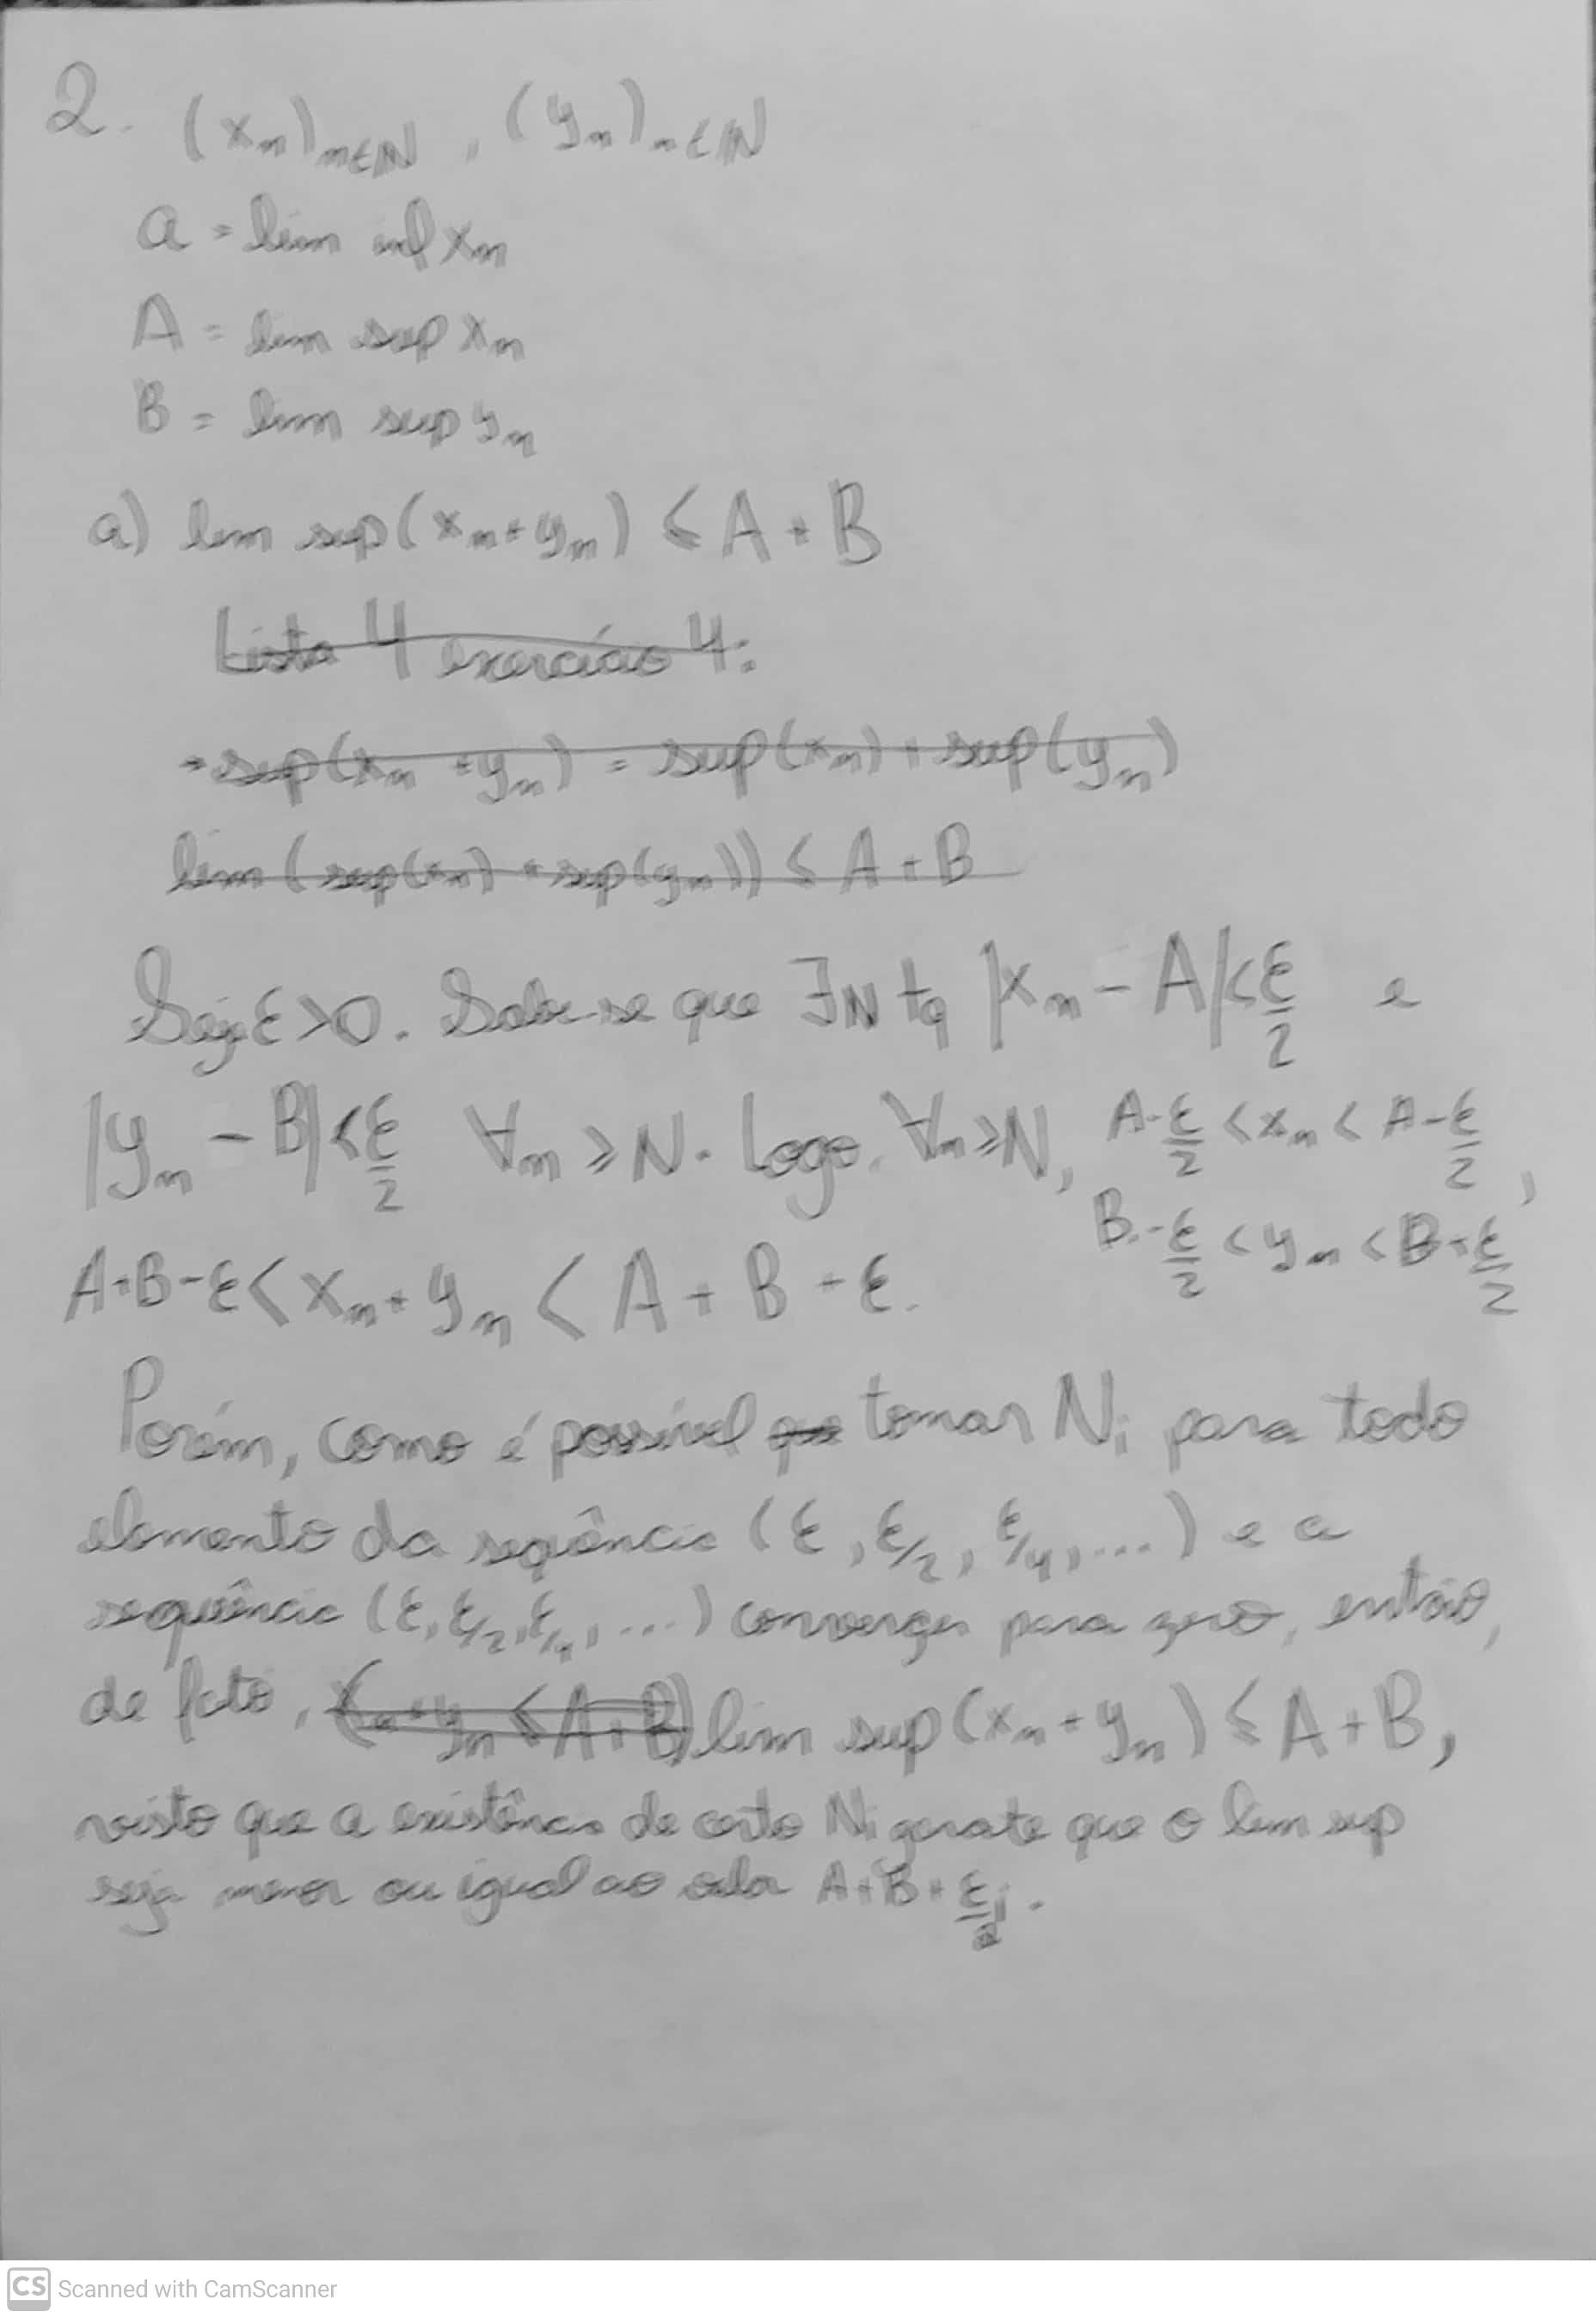 2. (xₙ)ₙ∈ℕ , (yₙ)ₙ∈ℕ
a = lim inf xₙ
A = lim sup xₙ
B = lim sup yₙ
a) lim sup(xₙ+yₙ) ≤ A + B
Lista 4 exercício 4:
sup(xₙ + yₙ) = sup(xₙ) + sup(yₙ)
lim (sup(xₙ) + sup(yₙ)) ≤ A + B
Seja ε>0. Sabe-se que ∃N tq |xₙ - A|<ε/2 e
|yₙ - B|<ε/2 ∀n ≥ N. Logo, ∀n≥N, A-ε/2 < xₙ < A+ε/2,
B-ε/2 < yₙ < B+ε/2
A+B-ε < xₙ + yₙ < A + B + ε.
Porém, como é possível que tomar Nᵢ para todo
elemento da seqüência (ε, ε/2, ε/4, ...) e a
sequência (ε, ε/2, ε/4, ...) converge para zero, então,
de fato, (xₙ+yₙ ≤ A+B) lim sup(xₙ + yₙ) ≤ A + B,
visto que a existência de certo Nᵢ garate que o lim sup
seja menor ou igual ao valor A+B+